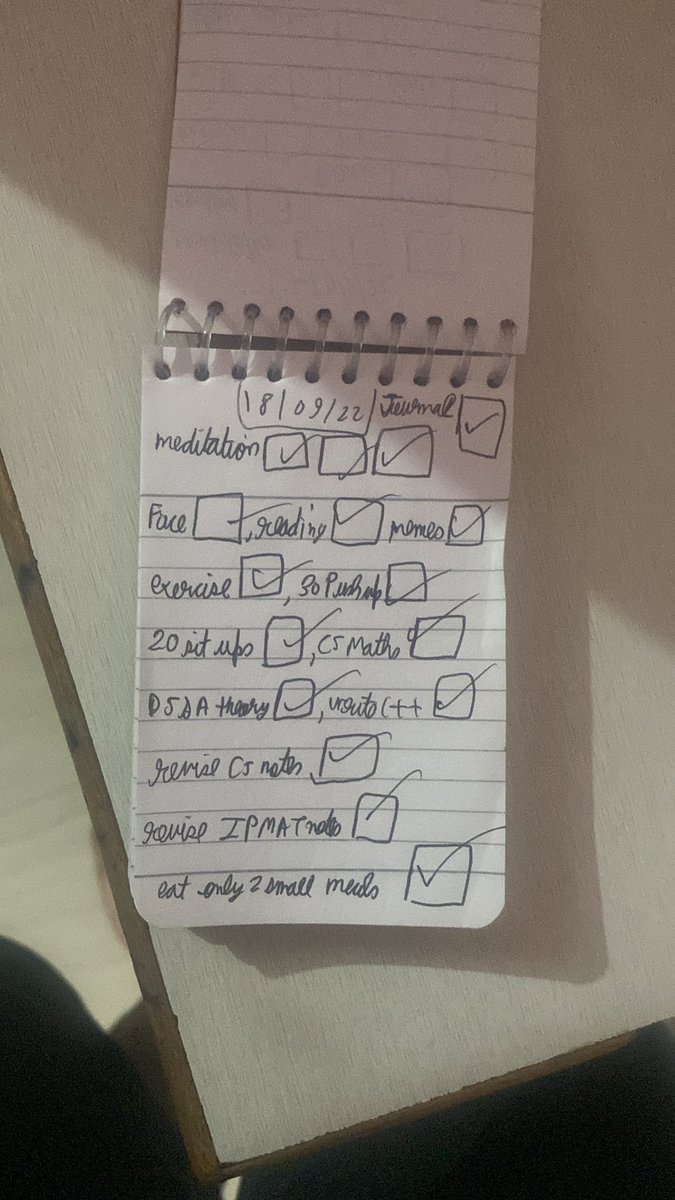 18/09/22 Journal
meditation
Face, reading memes
exercise, 30 Push up
20 sit ups, CS Maths
DSA theory, C++
revise CS notes
revise IPMAT notes
eat only 2 small meals